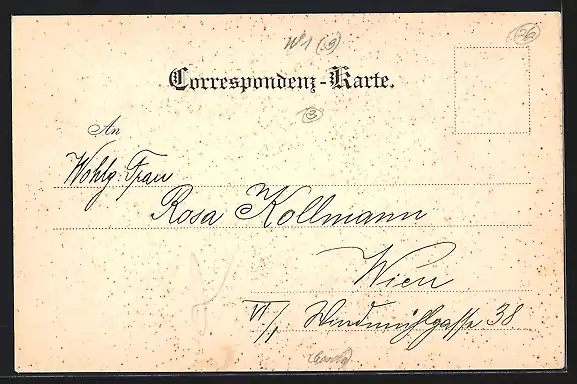 Correspondenz-Karte.
An
Wohlg. Frau
Rosa Kollmann
Wien
VI/1 Windmühlgasse 38.